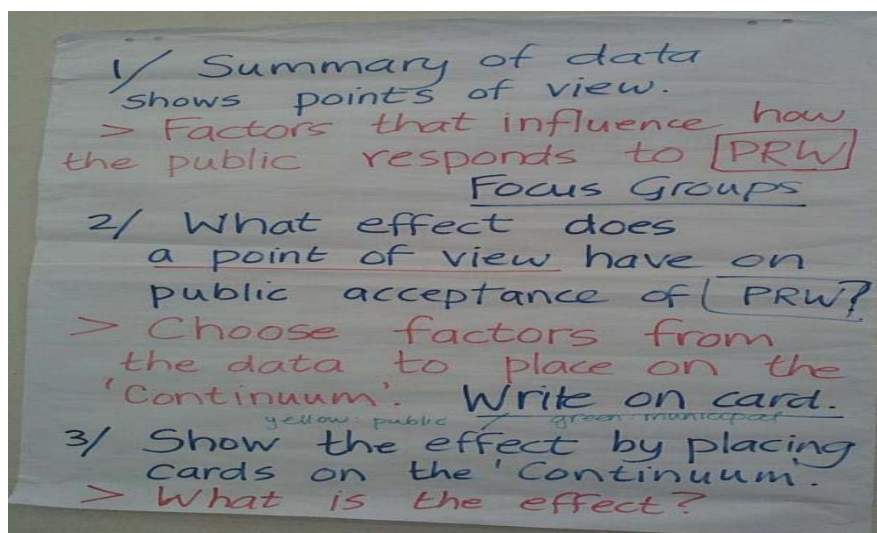 1/ Summary of data
shows points of view.
> Factors that influence how
the public responds to PRW
Focus Groups
2/ What effect does
a point of view have on
public acceptance of PRW?
> Choose factors from
the data to place on the
'Continuum'. Write on card.
yellow: public / green municipal
3/ Show the effect by placing
cards on the 'Continuum'.
> What is the effect?